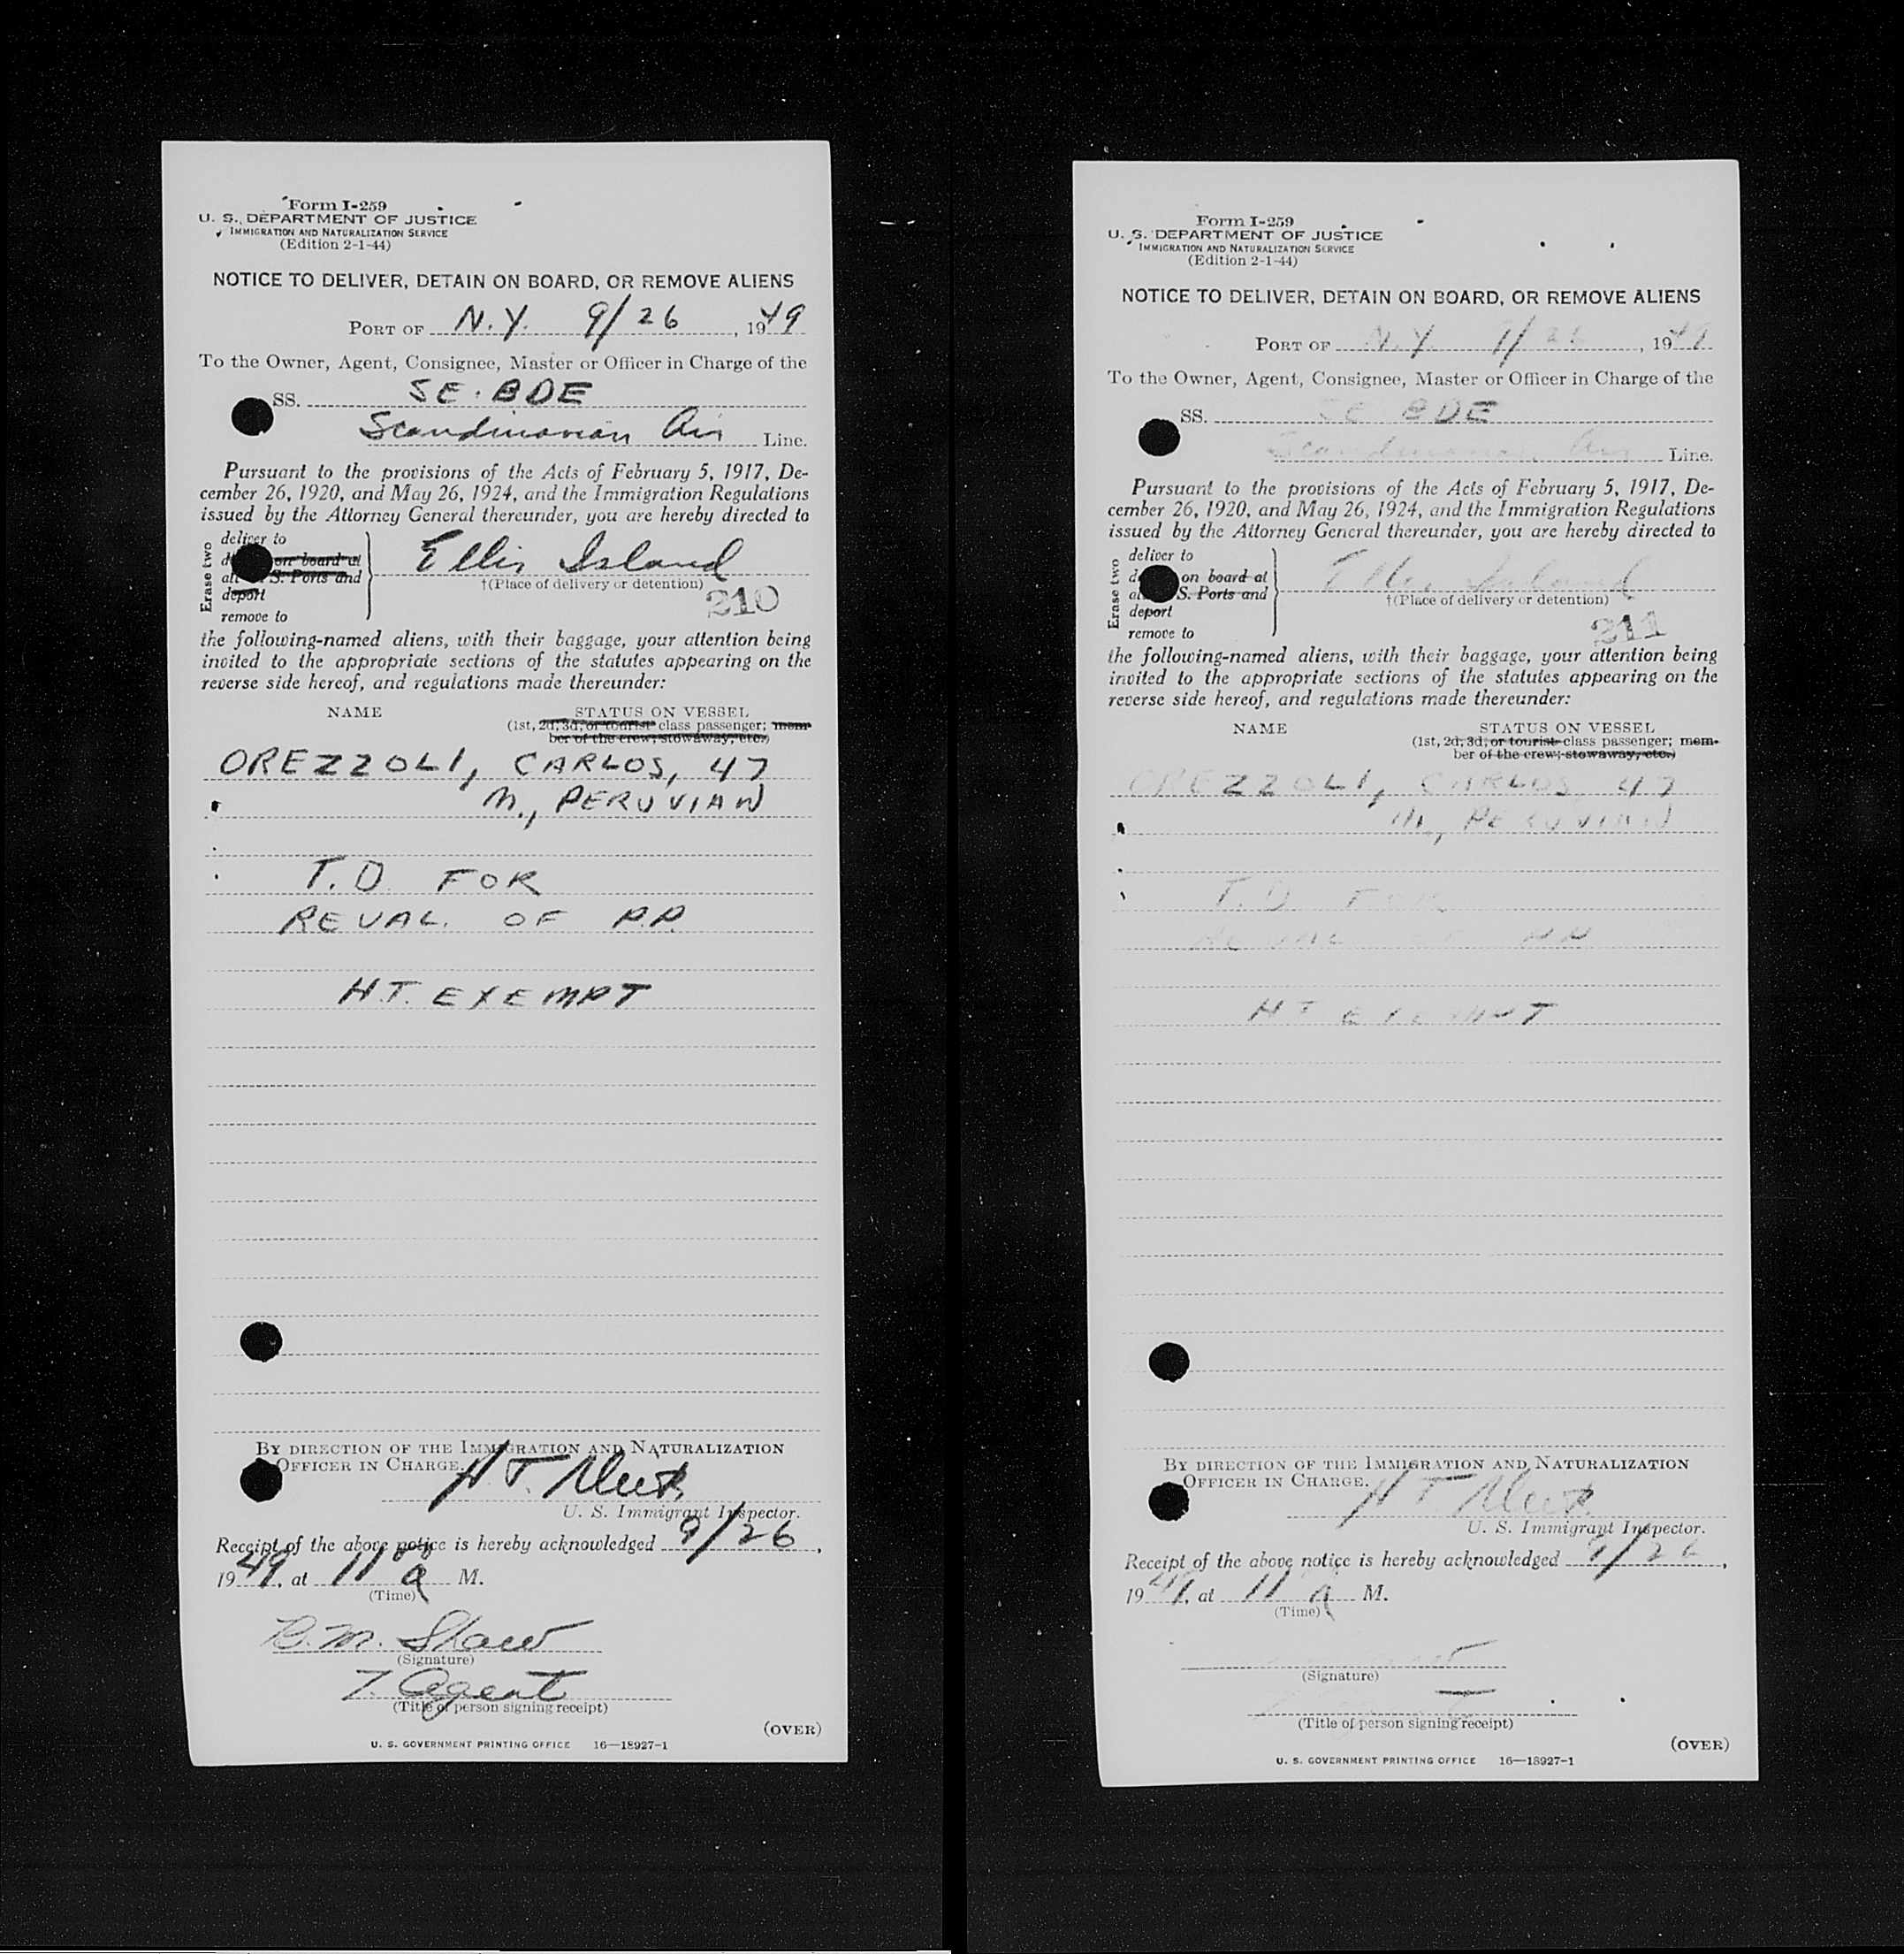 Form I-259
U. S. DEPARTMENT OF JUSTICE
IMMIGRATION AND NATURALIZATION SERVICE
(Edition 2-1-44)
NOTICE TO DELIVER, DETAIN ON BOARD, OR REMOVE ALIENS
PORT OF N.Y. 9/26, 1949
To the Owner, Agent, Consignee, Master or Officer in Charge of the
SS. SE-BDE
Scandinavian Air Line.
Pursuant to the provisions of the Acts of February 5, 1917, De-
cember 26, 1920, and May 26, 1924, and the Immigration Regulations
issued by the Attorney General thereunder, you are hereby directed to
Erase two
deliver to
on board at
S. Ports and
deport
remove to
Ellis Island
†(Place of delivery or detention)
210
the following-named aliens, with their baggage, your attention being
invited to the appropriate sections of the statutes appearing on the
reverse side hereof, and regulations made thereunder:
NAME STATUS ON VESSEL
(1st, 2d, 3d, or tourist class passenger; mem-
ber of the crew; stowaway, etc.)
OREZZOLI, CARLOS, 47
M., PERUVIAN
T.D. FOR
REVAL. OF P.P.
H.T. EXEMPT
BY DIRECTION OF THE IMMIGRATION AND NATURALIZATION
OFFICER IN CHARGE.
H.T.
U. S. Immigrant Inspector.
Receipt of the above notice is hereby acknowledged 9/26,
1949, at 11 00 a M.
(Time)
B.M. Shaw
(Signature)
T. Agent
(Title of person signing receipt)
(OVER)
U. S. GOVERNMENT PRINTING OFFICE 16—18927-1
Form I-259
U. S. DEPARTMENT OF JUSTICE
IMMIGRATION AND NATURALIZATION SERVICE
(Edition 2-1-44)
NOTICE TO DELIVER, DETAIN ON BOARD, OR REMOVE ALIENS
PORT OF N.Y. 9/26, 1949
To the Owner, Agent, Consignee, Master or Officer in Charge of the
SS. SE BDE
Scandinavian Air Line.
Pursuant to the provisions of the Acts of February 5, 1917, De-
cember 26, 1920, and May 26, 1924, and the Immigration Regulations
issued by the Attorney General thereunder, you are hereby directed to
Erase two
deliver to
on board at
S. Ports and
deport
remove to
Ellis Island
†(Place of delivery or detention)
211
the following-named aliens, with their baggage, your attention being
invited to the appropriate sections of the statutes appearing on the
reverse side hereof, and regulations made thereunder:
NAME STATUS ON VESSEL
(1st, 2d, 3d, or tourist class passenger; mem-
ber of the crew; stowaway, etc.)
OREZZOLI, CARLOS 47
M., PERUVIAN
T.D. FOR
REVAL OF P.P.
H T EXEMPT
BY DIRECTION OF THE IMMIGRATION AND NATURALIZATION
OFFICER IN CHARGE.
H T
U. S. Immigrant Inspector.
Receipt of the above notice is hereby acknowledged 9/26,
1949, at 11 a M.
(Time)
(Signature)
(Title of person signing receipt)
(OVER)
U. S. GOVERNMENT PRINTING OFFICE 16—18927-1